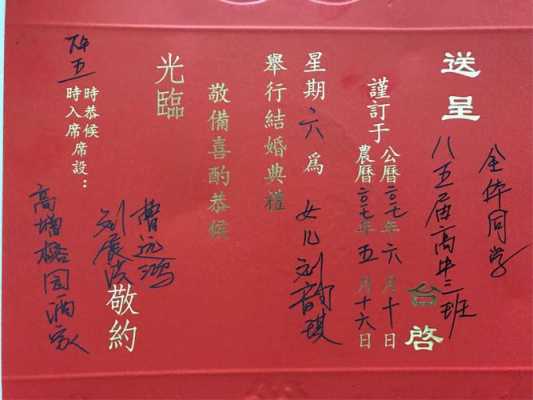 送呈
全体同学
八五届高中三班
台啓
謹訂于
公曆二〇一七年六月十日
農曆二〇一七年五月十六日
星期六為女儿刘韵琪
舉行結婚典禮
敬備喜酌恭候
光臨
曹远鸿
刘展波
敬約
下午五
時恭候
時入席
席設：
高增格园酒家